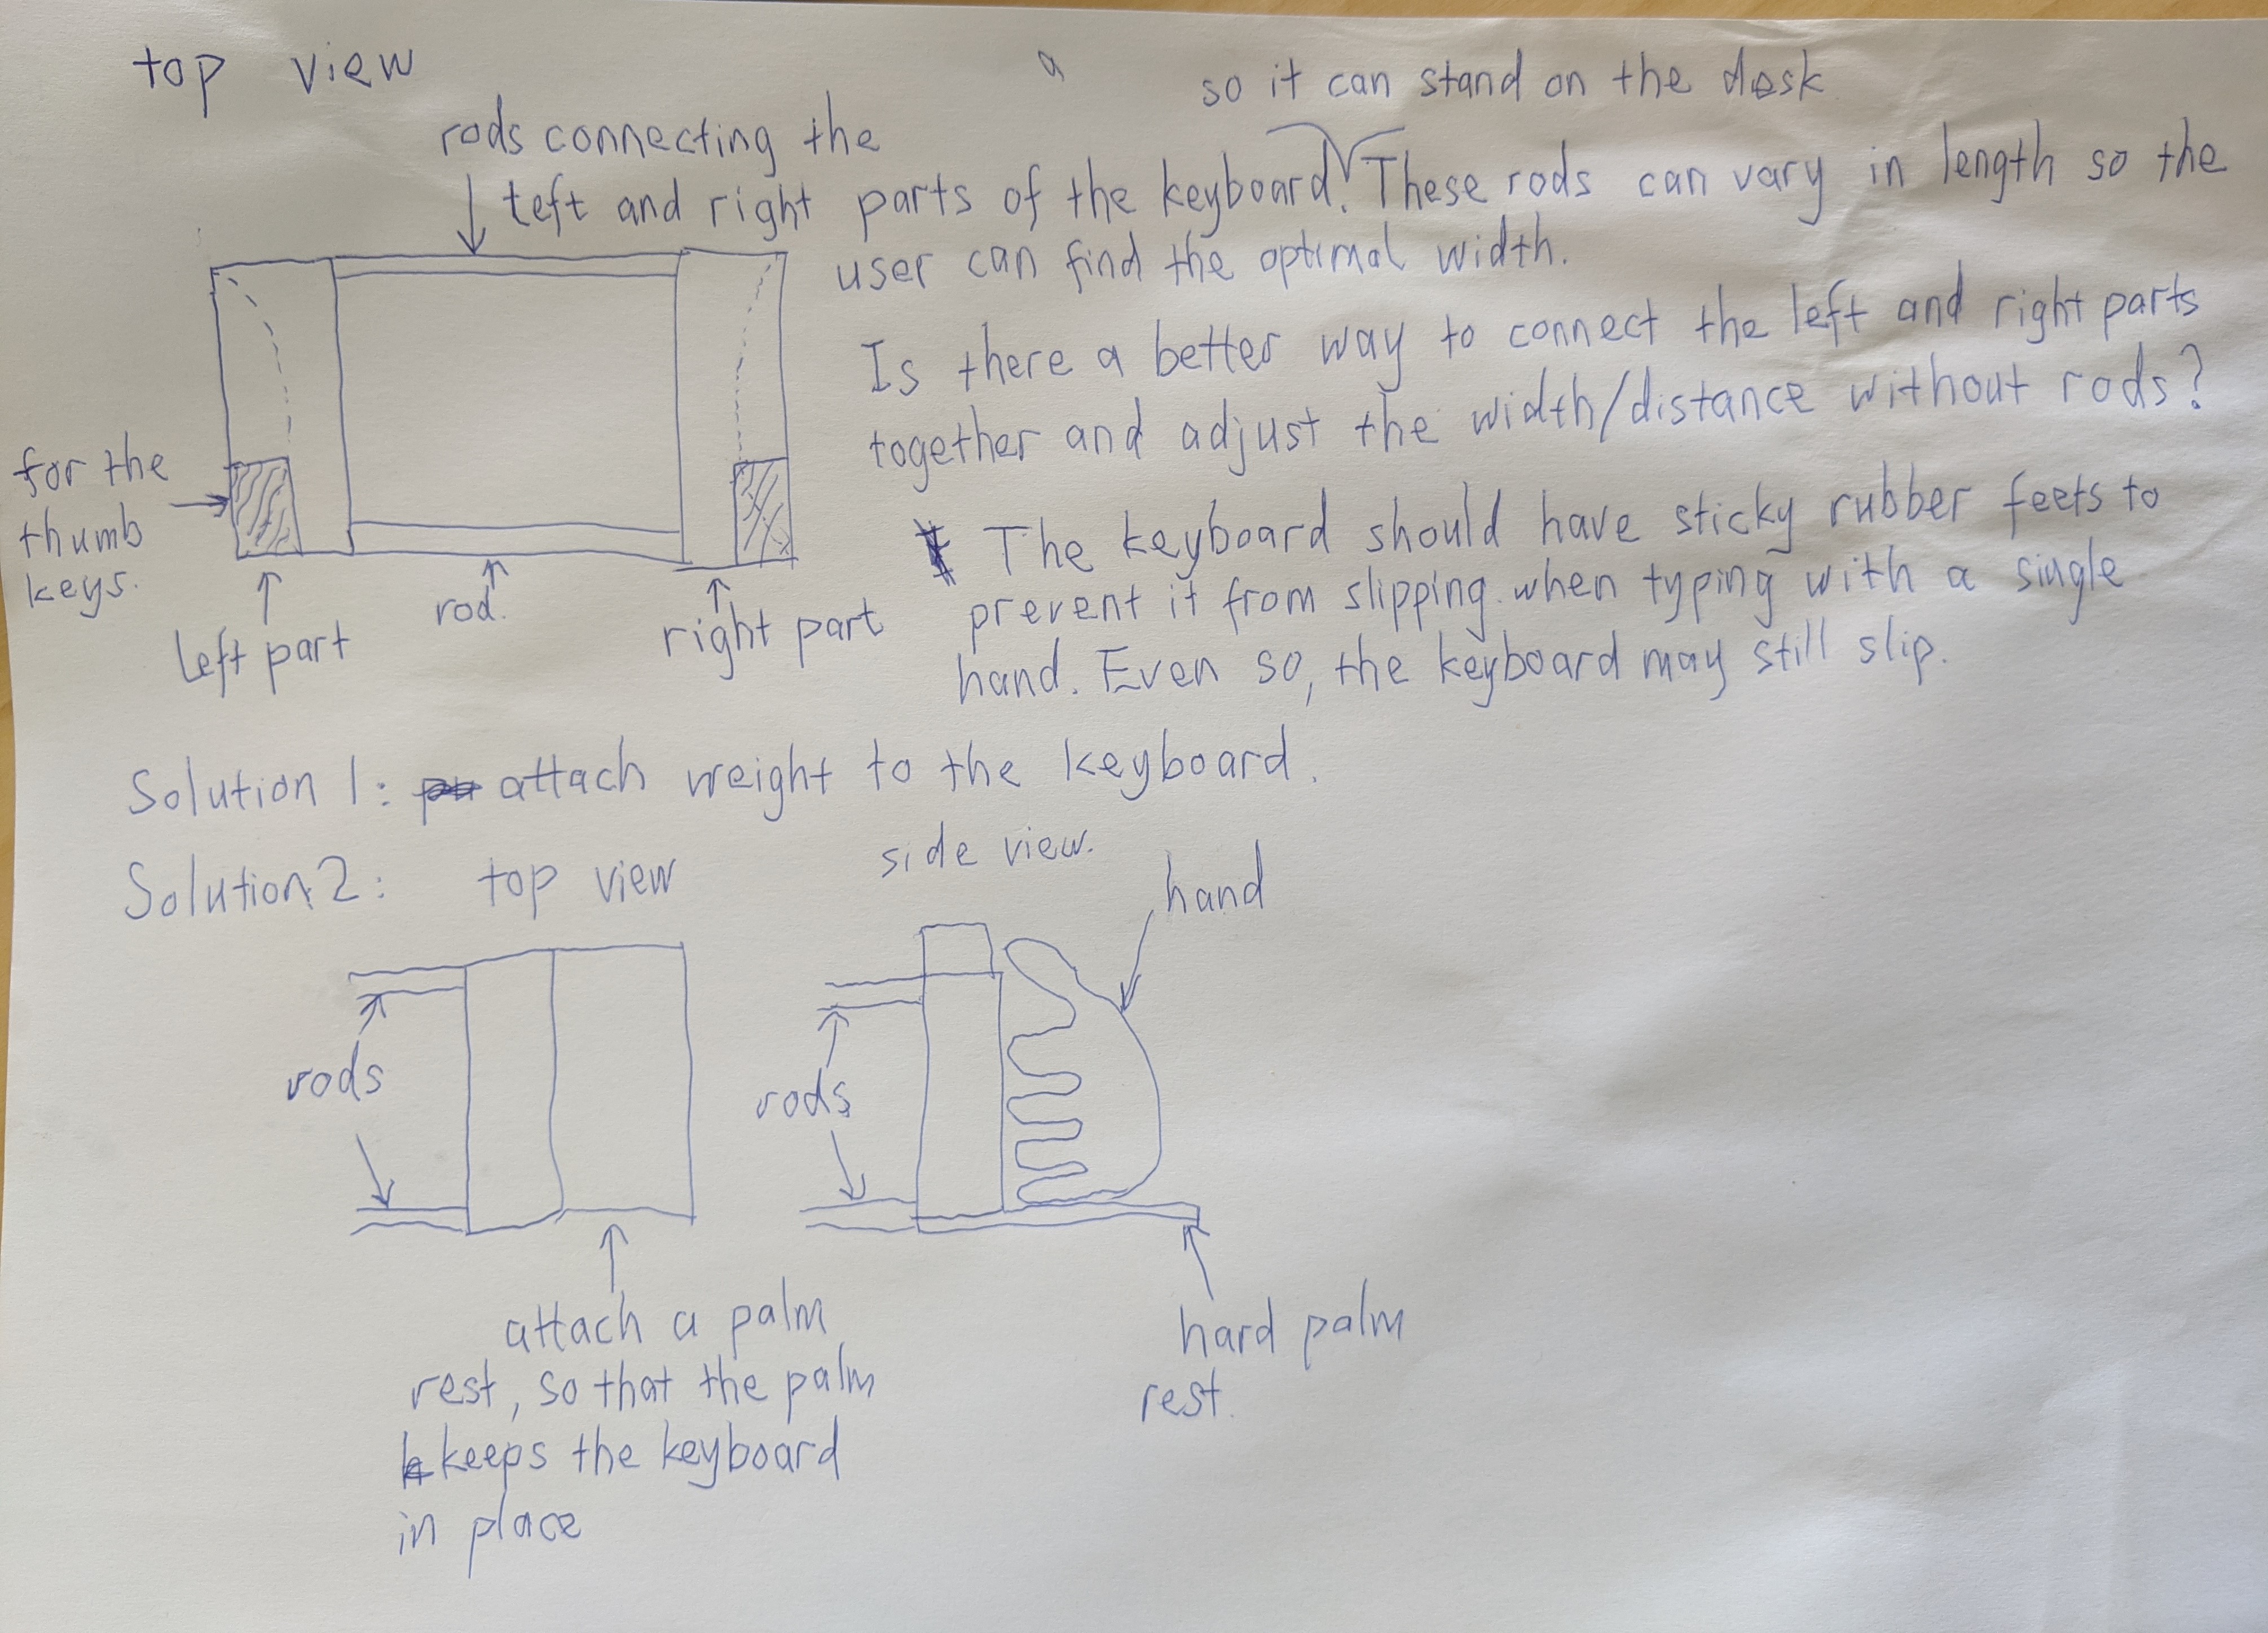 top view
a
so it can stand on the desk
rods connecting the
left and right parts of the keyboard. These rods can vary in length so the
user can find the optimal width.
Is there a better way to connect the left and right parts
together and adjust the width/distance without rods?
for the
thumb
keys.
left part
rod.
right part
* The keyboard should have sticky rubber feets to
prevent it from slipping when typing with a single
hand. Even so, the keyboard may still slip.
Solution 1: attach weight to the keyboard.
Solution 2:
top view
side view.
hand
rods
rods
attach a palm
rest, so that the palm
keeps the keyboard
in place
hard palm
rest.